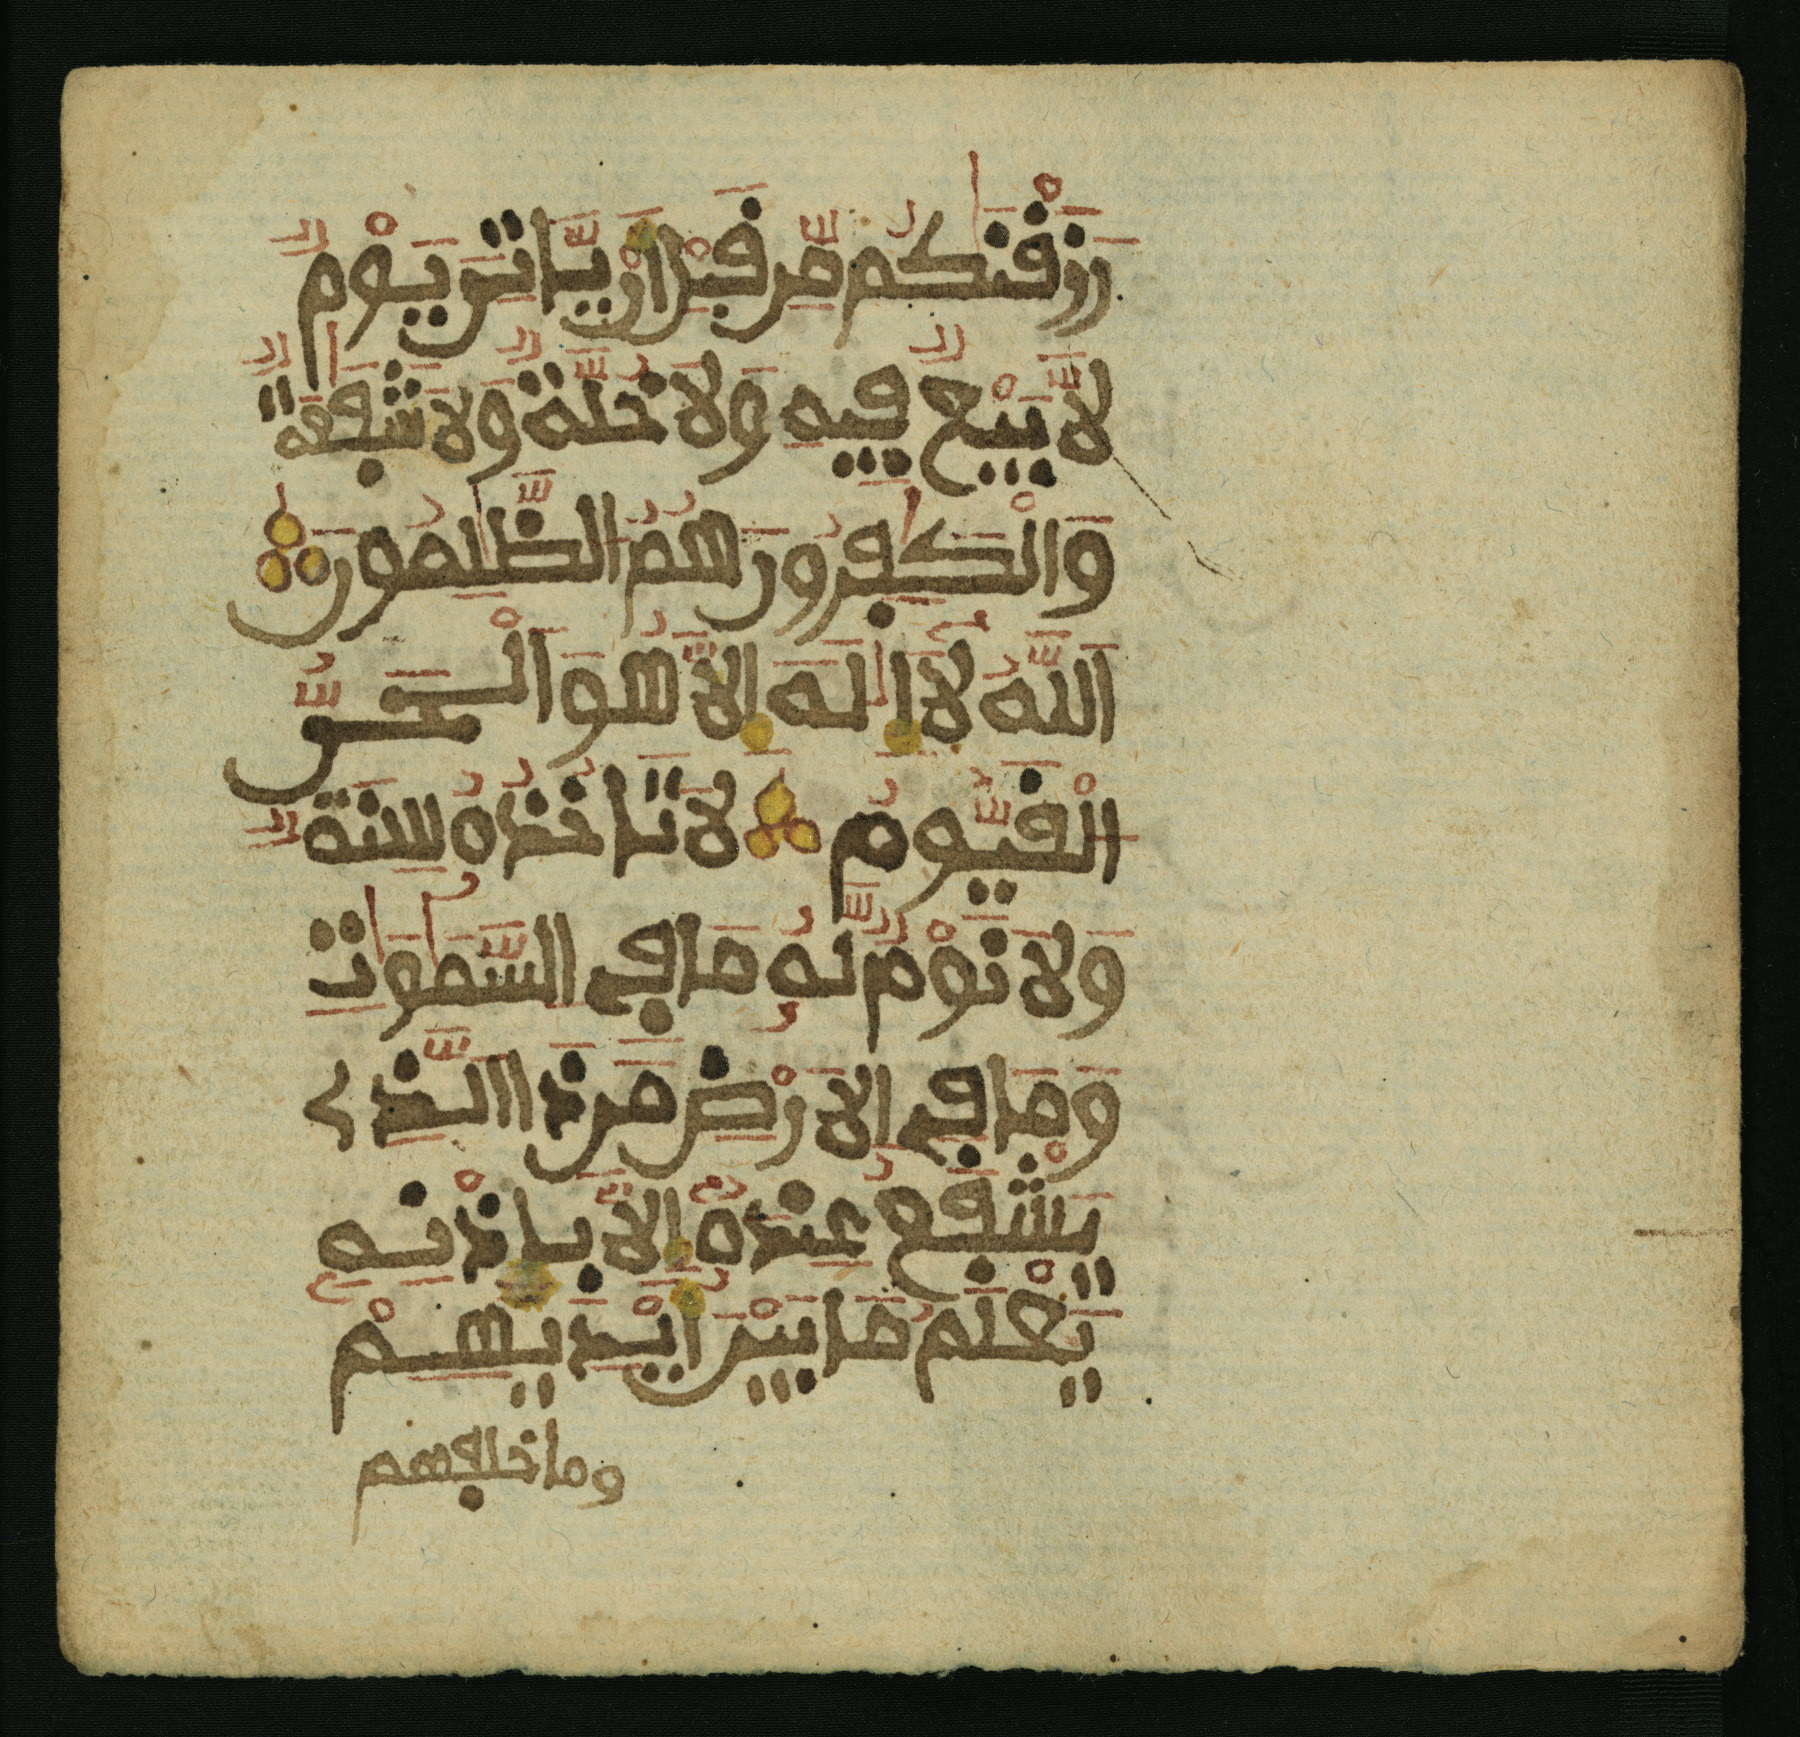 رَزَقْنَٰكُم مِّن قَبْلِ أَن يَّاتِيَ يَوْمٌ
لَّا بَيْعٌ فِيهِ وَلَا خُلَّةٌ وَلَا شَفَٰعَةٌ
وَالْكَٰفِرُونَ هُمُ الظَّٰلِمُونَ
اَللَّهُ لَا إِلَٰهَ إِلَّا هُوَ اَلْحَيُّ
الْقَيُّومُ لَا تَاخُذُهُ سِنَةٌ
وَلَا نَوْمٌ لَّهُ مَا فِي السَّمَٰوَٰتِ
وَمَا فِي الَارْضِ مَن ذَا الَّذِي
يَشْفَعُ عِندَهُ إِلَّا بِإِذْنِهِ
يَعْلَمُ مَا بَيْنَ أَيْدِيهِمْ
وما خلفهم